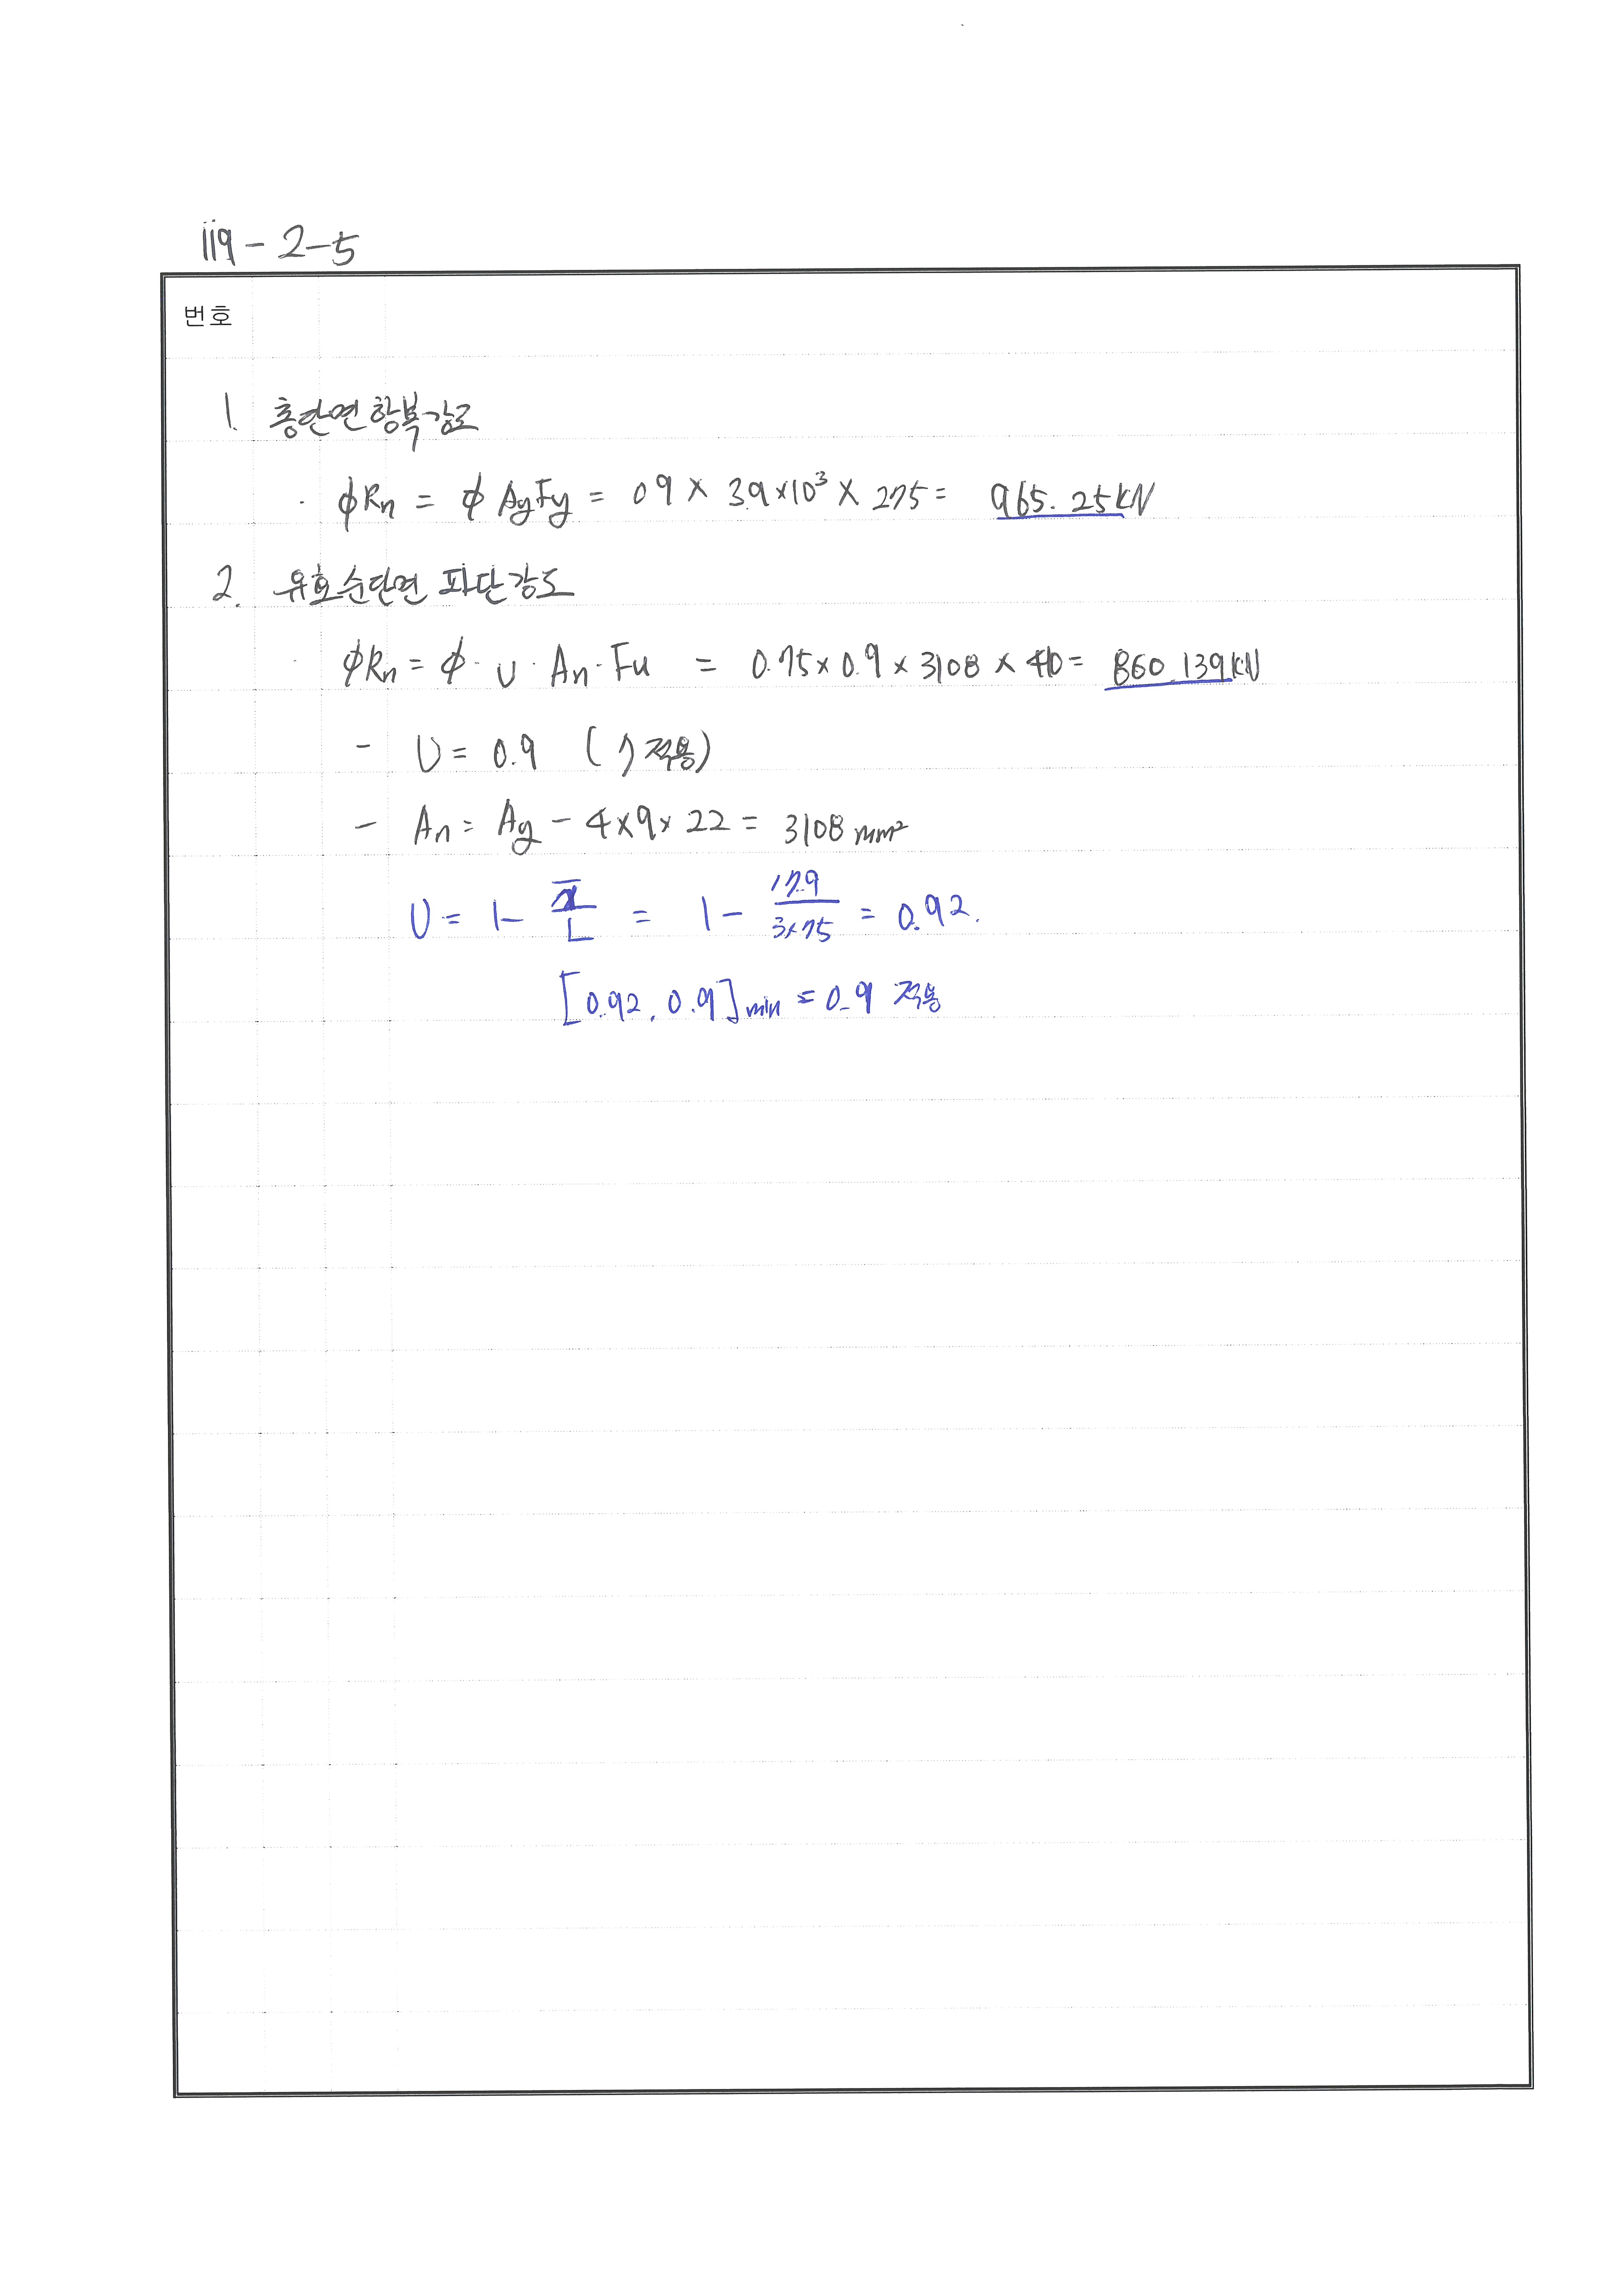 119 - 2 - 5
번호
1. 총단면 항복강도
· ϕRn = ϕ AgFy = 0.9 × 3.9×10³ × 275 = 965.25kN
2. 유효순단면 파단강도
· ϕRn = ϕ · U · An · Fu = 0.75 × 0.9 × 3108 × 410 = 860.139kN
- U = 0.9 ( 적용)
- An = Ag - 4×9×22 = 3108 mm²
U = 1 - x̄/L = 1 - 17.9/3×75 = 0.92.
[0.92, 0.9]min = 0.9 적용